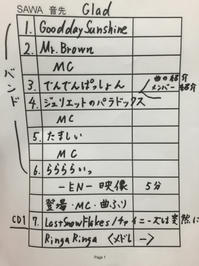 SAWA 音先 Glad
バンド
1. Good day Sunshine
2. Mr. Brown
MC
3. でんでんぱっしょん 曲の紹介 メンバー紹介
4. ジュリエットのパラドックス
MC
5. たましい
MC
6. ららららいっ
-EN- 映像 5分
登場・MC・曲ふり
CD1 7. Last Snow Flakes/チャイニーズは突然に
Ringa Ringa 〈メドレー〉
Page 1